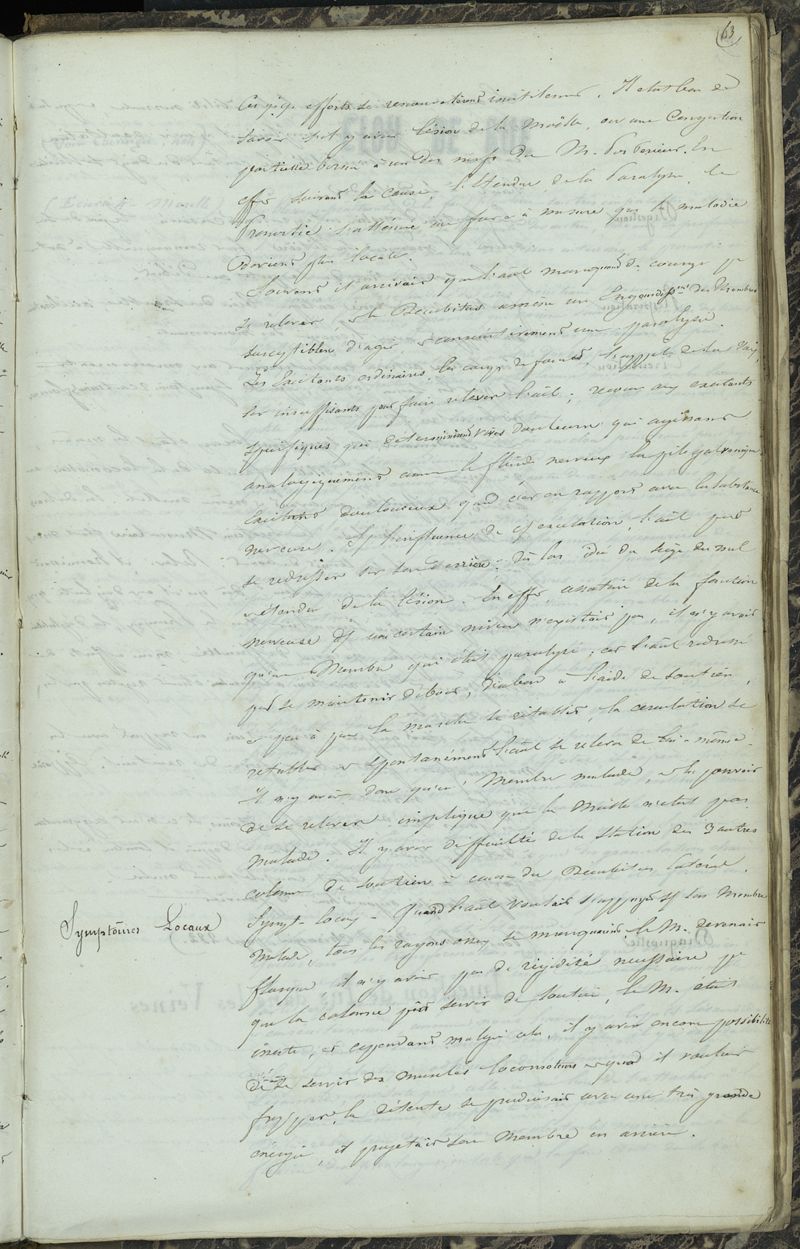 63
efforts de
savoir s'il y avait lésion de la Moëlle, ou une Congestion
partielle à un des nerfs du M. Postérieur. En
effet suivant la cause, l'Etendue de la Paralysie, le
Pronostic s'atténue au fur et à mesure que la maladie
Devient plus locale.
Souvent il arrivait que l'anl manquant de courage pr
se relever, le Décubitus amène un Engourdisst des Membres
susceptibles d'agir, et consécutivement une paralysie.
Les Excitants ordinaires, les coups de fouet,
st insuffisants pour faire relever l'anl; recours aux excitants
spécifiques qui déterminent vives douleurs qui agissant
analogiquement comme le fluide nerveux la pile galvanique
Excitant douloureux quand c'est en rapport avec la substance
nerveuse. Sous l'influence de cet excitation, l'anl peut
se redresser sur son derrière; Dès lors idée du siège du mal
et étendue de la lésion. En effet cessation de la fonction
nerveuse dès un certain niveau n'existait pas, il n'y avait
qu'un Membre qui était paralysé; car l'anl redressé
put se maintenir debout, d'abord à l'aide de soutien,
et peu à peu la marche se rétablit, la circulation se
rétablit et spontanément l'anl se releva de lui-même.
Il n'y avait donc qu'un Membre malade, et le pouvoir
de se relever implique que la Moëlle n'était pas
malade. Il y avait difficulté de la station des 3 autres
colonnes de soutien à cause du Décubitus latéral.
Symptômes Locaux
Sympt. locaux - Quand l'anl voulait s'appuyer sur son Membre
malade, tous les rayons osseux se manquaient, le M. devenait
flasque il n'y avait pas de rigidité nécessaire pr
que la colonne pût servir de soutien, le M. était
inerte, et cependant malgré cela, il y avait encore possibilité
de se servir des muscles locomoteurs et quand il voulait
frapper, la détente se produisait avec une très grande
énergie, il projetait son Membre en arrière.